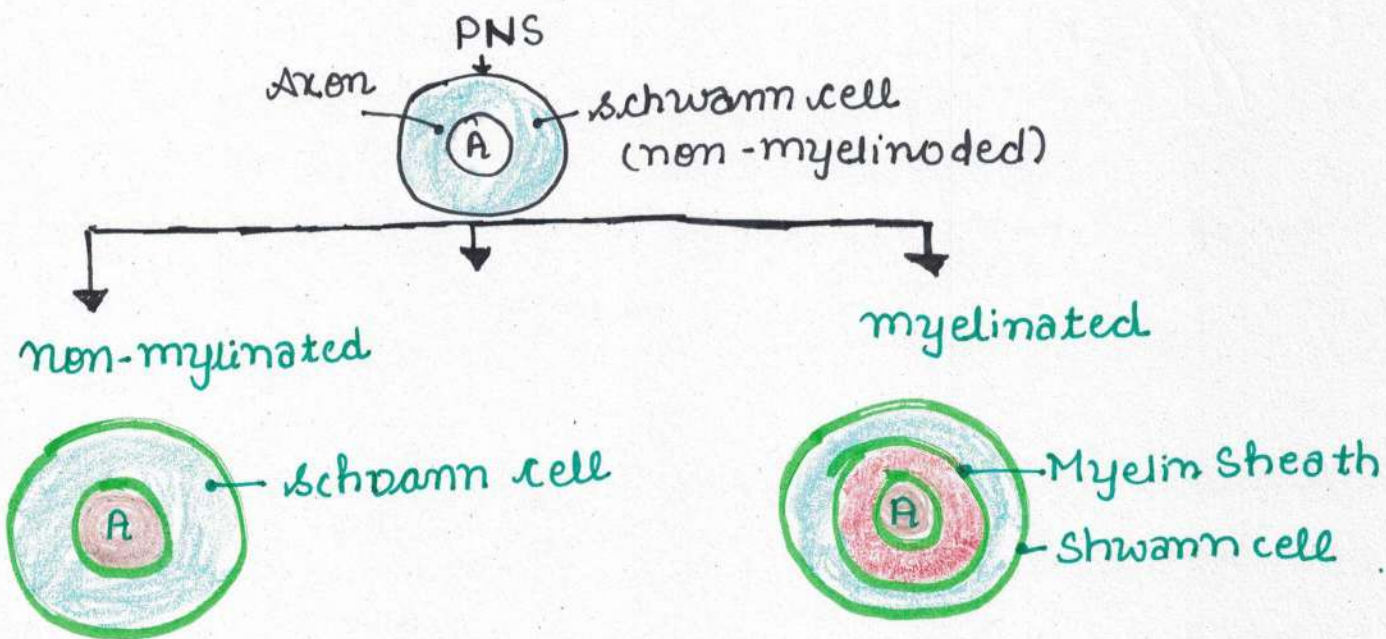 PNS
Axon
A
schwann cell
(non-myelinoded)
non-mylinated
myelinated
A
schwann cell
A
Myelin Sheath
Shwann cell